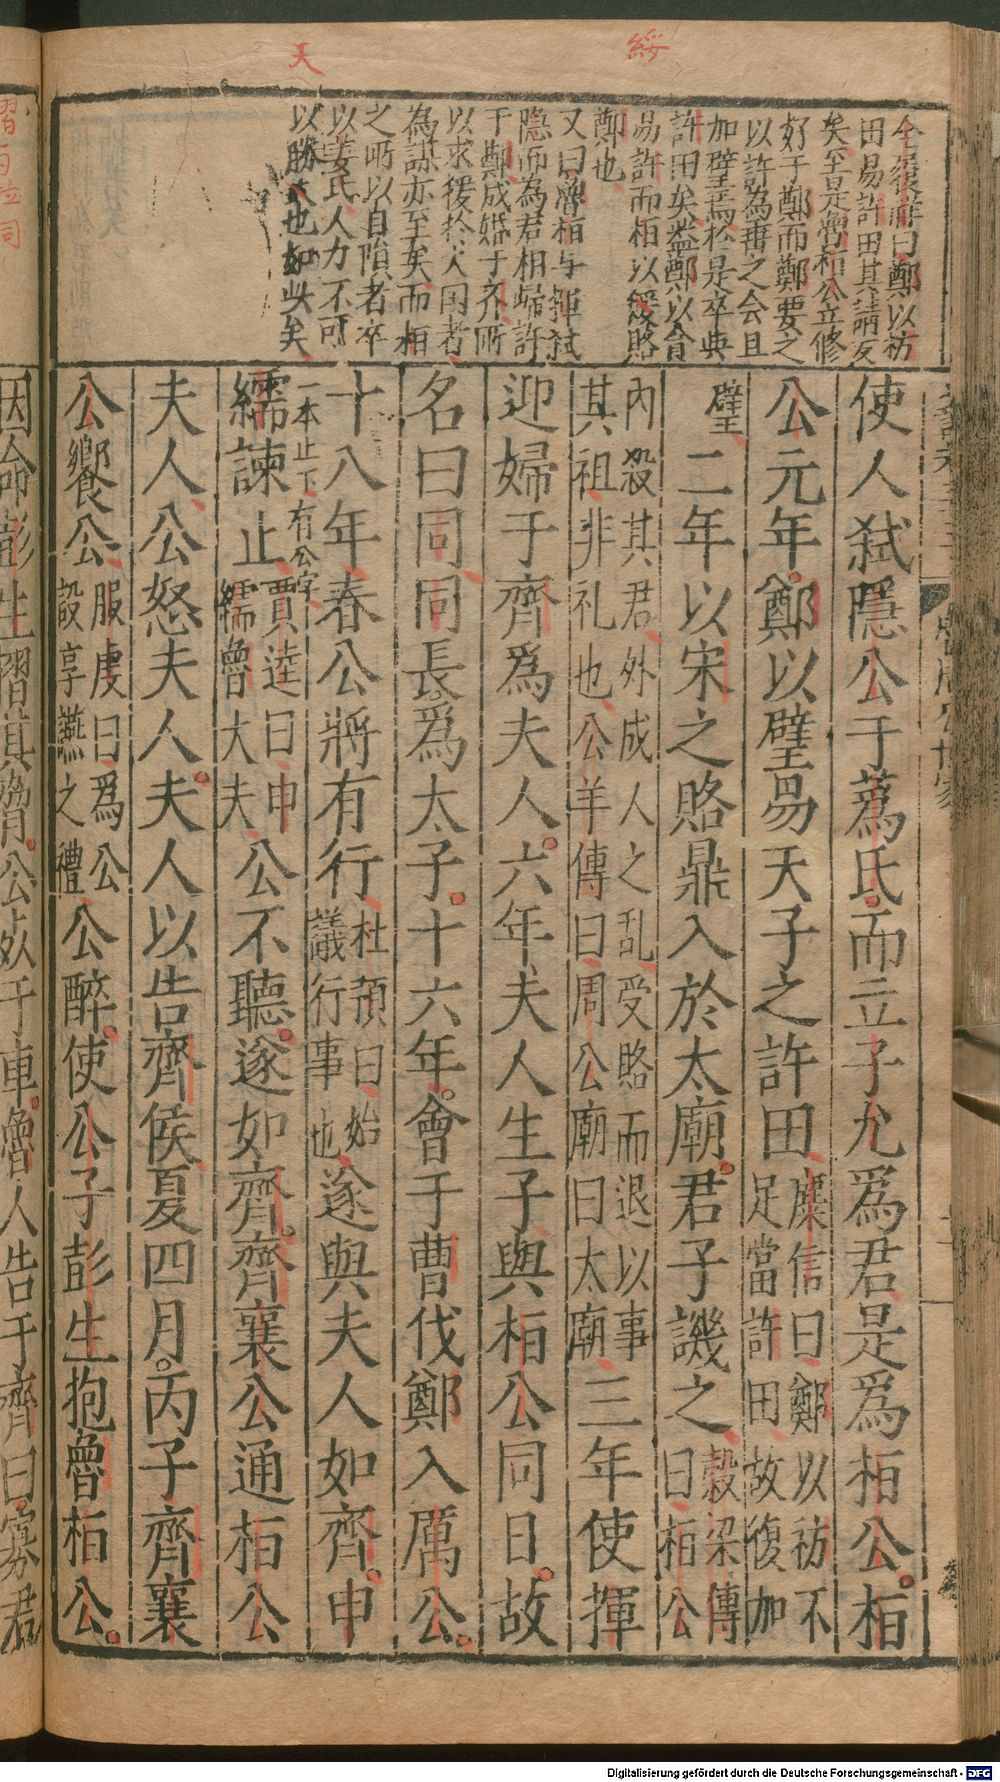 綏
天
金履祥曰鄭以祊
田易許田其請反
矣至是魯栢公立修
好于鄭而鄭要之
以許為垂之会且
加璧焉於是卒与
許田矣盖鄭以會
易許而栢以緩賂
鄭也
又曰魯栢与揮弑
隱而為君相歸許
于鄭成婚于齐所
以求援於大国者
為謀亦至矣而栢
之所以自隕者卒
以姜氏人力不可
以勝天也如此矣
使人弑隱公于蔿氏而立子允爲君是爲栢公栢
公元年鄭以璧易天子之許田麋信曰鄭以祊不足當許田故復加
璧二年以宋之賂鼎入於太廟君子譏之穀梁傳曰栢公
內殺其君外成人之乱受賂而退以事其祖非礼也公羊傳曰周公廟曰太廟三年使揮
迎婦于齊爲夫人六年夫人生子與栢公同日故
名曰同同長爲太子十六年會于曹伐鄭入厲公
十八年春公將有行杜預曰始議行事也遂與夫人如齊申
一本止下有公字
繻諫止賈逵曰申繻魯大夫公不聽遂如齊齊襄公通栢公
夫人公怒夫人夫人以告齊侯夏四月丙子齊襄
公饗公服虔曰爲公設享讌之禮公醉使公子彭生抱魯栢公
因命彭生摺其脅公死于車魯人告于齊曰寡君
摺
同
Digitalisierung gefördert durch die Deutsche Forschungsgemeinschaft - DFG